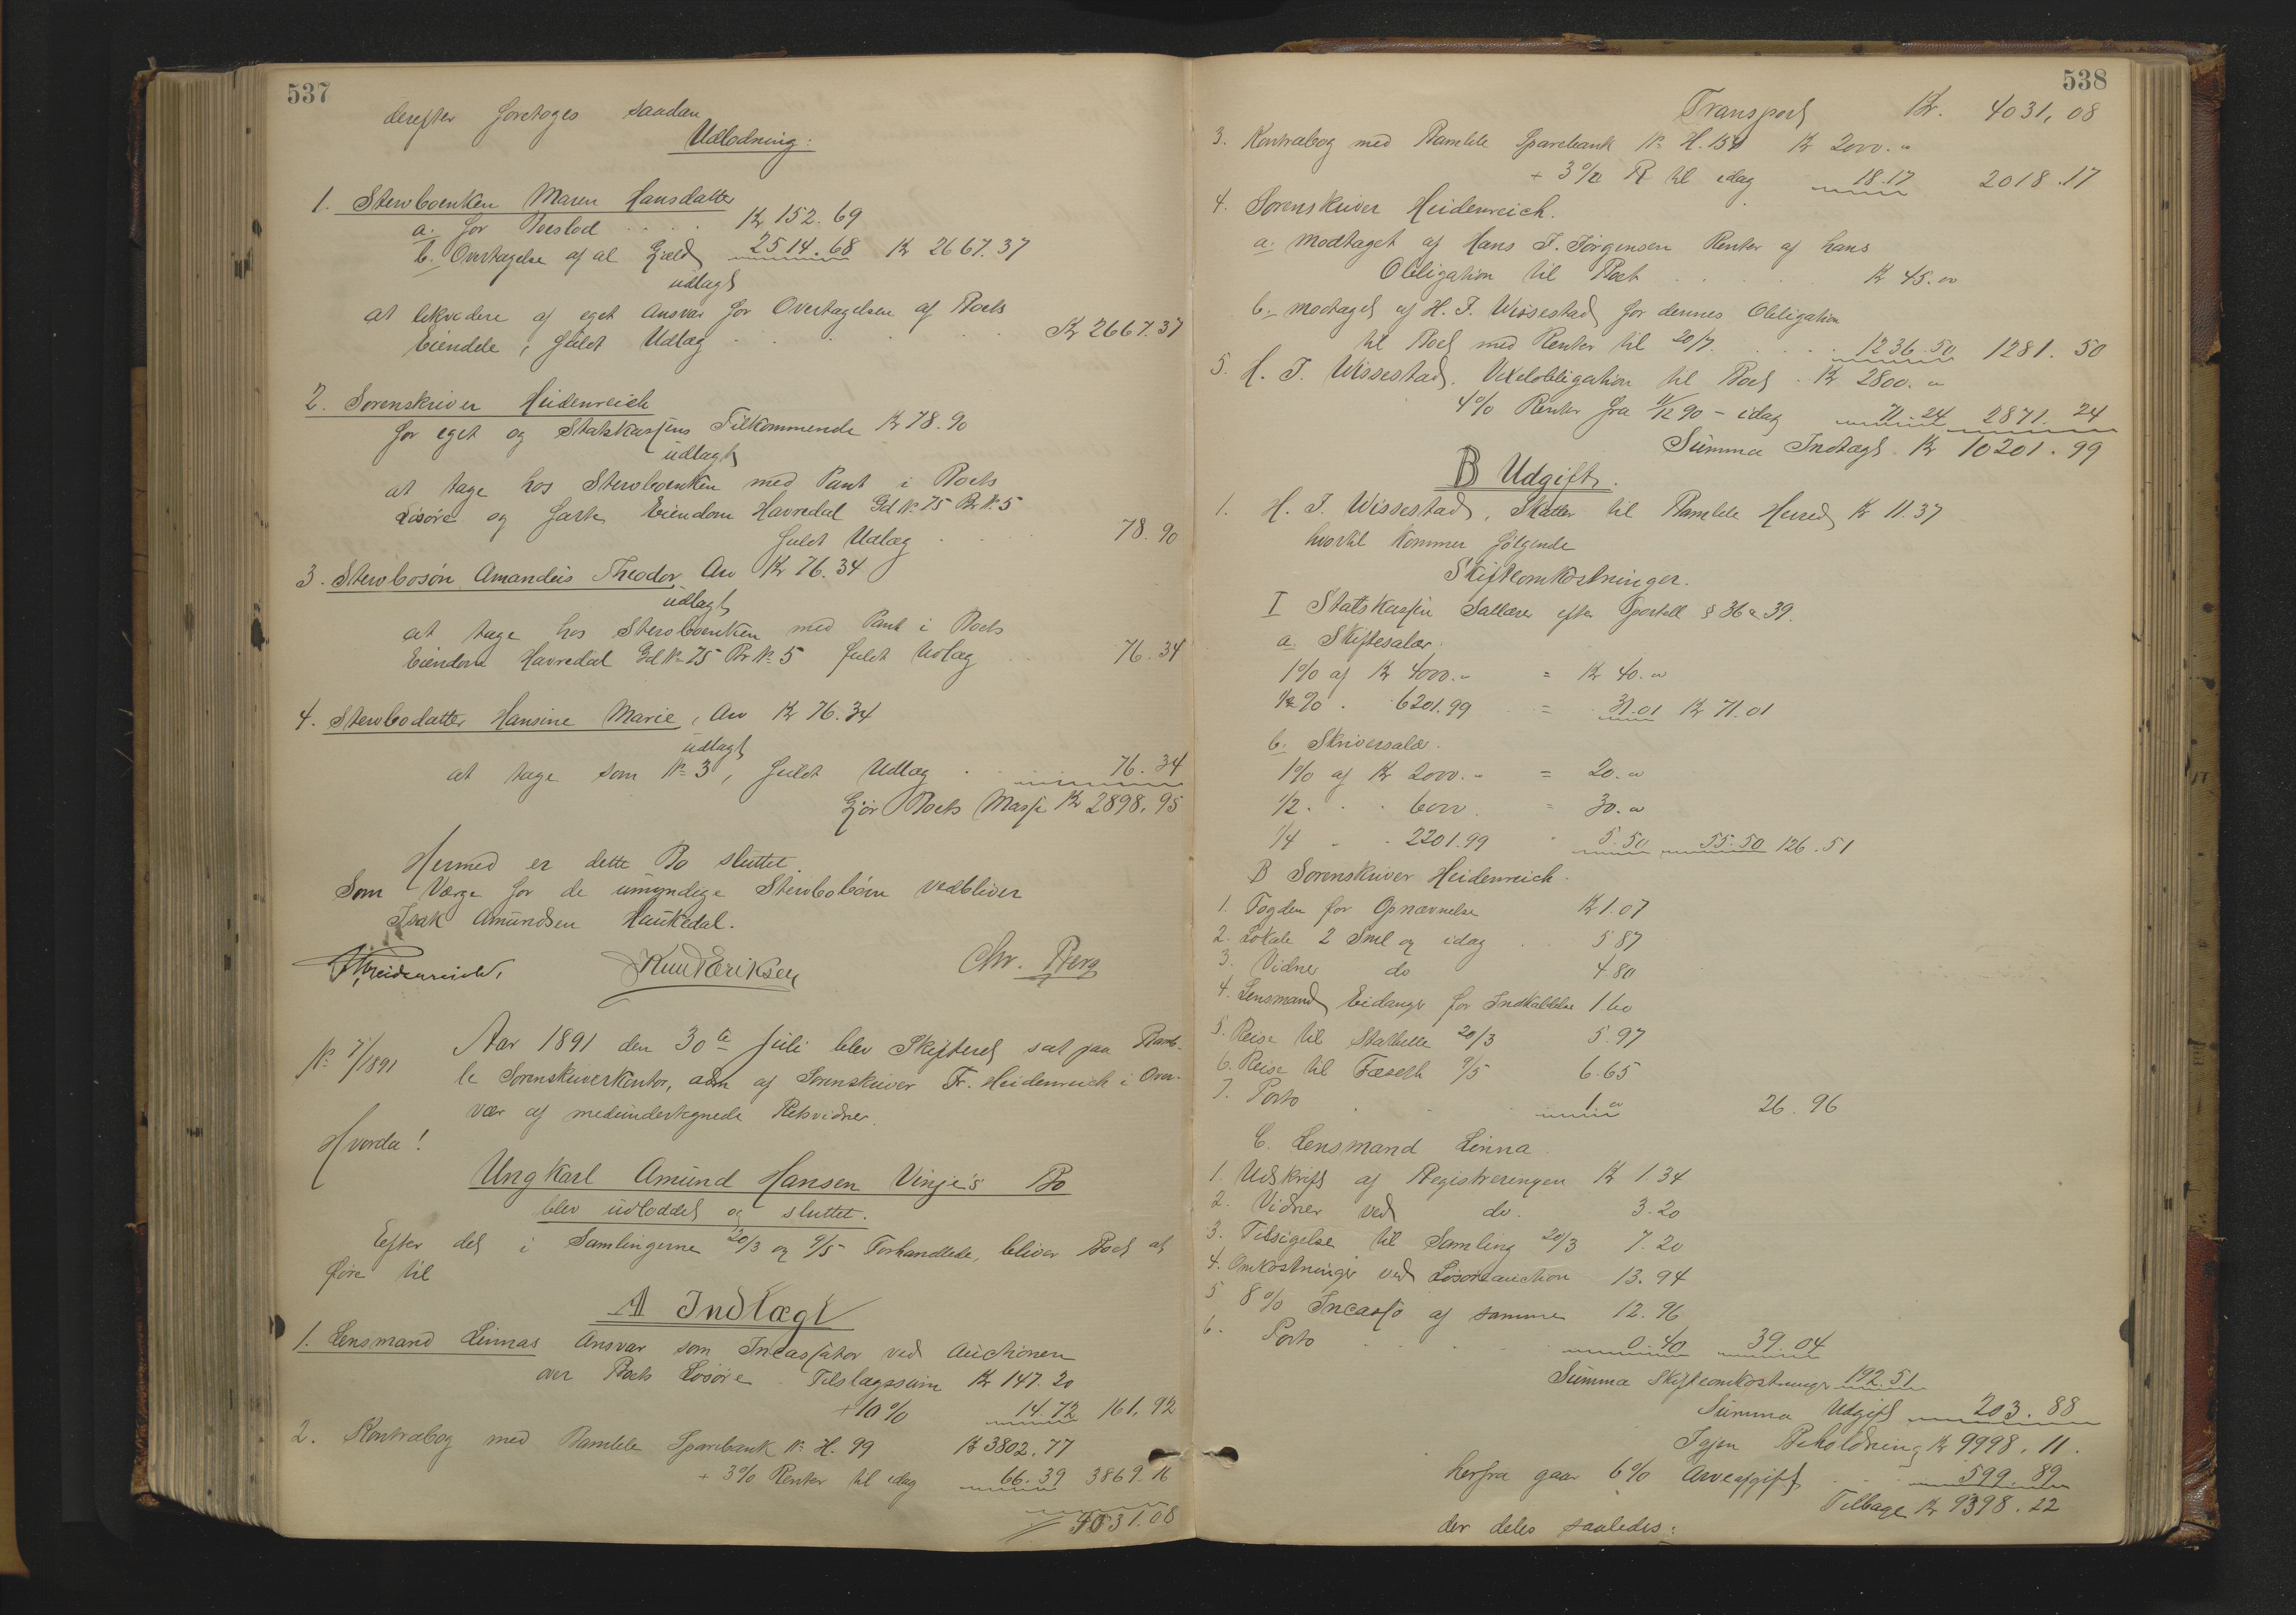 537
derefter foretoges saadan
Udlodning:
1. Stervboenken Maren Hansdatter
a. for Boeslod . . . . Kr 152.69
b. Overtagelse af al Gjæld 2514.68 Kr 2667.37
udlagt
at likvidere af eget Ansvar for Overtagelsen af Boets
Eiendele, fuldt Udlæg . . . . . Kr 2667.37
2. Sorenskriver Heidenreich
for eget og Statskassens Tilkommende Kr 78.90
udlagt
at tage hos Stervboenken med Pant i Boets
Løsøre og faste Eiendom Havredal Gd No 75 Br No 5
fuldt Udlæg . . . . 78.90
3. Stervbosøn Amandus Theodor, Arv Kr 76.34
udlagt
at tage hos Stervboenken med Pant i Boets
Eiendom Havredal Gd No 75 Br No 5 fuldt Udlæg . . 76.34
4. Stervbodatter Hansine Marie, Arv Kr 76.34
udlagt
at tage som No 3, fuldt Udlæg . . . 76.34
Gjør Boets Masse Kr 2898.95
Hermed er dette Bo sluttet.
Som Værge for de umyndige Stervbobørn vedbliver
Isak Amundsen Haukedal.
Fr Heidenreich. Knud Eriksen Chr. Berg
No 7/1891 Aar 1891 den 30te Juli blev Skifteret sat paa Bamb-
le Sorenskriverkontor, adm af Sorenskriver Fr. Heidenreich i Over-
vær af medundertegnede Retsvidner.
Hvorda!
Ungkarl Amund Hansen Vinje's Bo
blev udloddet og sluttet.
Efter det i Samlingerne 20/3 og 9/5 Forhandlede, bliver Boet at
føre til
A Indtægt
1. Lensmand Linnas Ansvar som Incassator ved Auctionen
over Boets Løsøre. Tilslagssum Kr 147.20
+ 10% 14.72 161,92
2. Kontrabog med Bamble Sparebank No H. 99 Kr 3802.77
+ 3% Renter til idag 66.39 3869.16
4031.08
538
Transport Kr. 4031,08
3. Kontrabog med Bamble Sparebank No H. 154 Kr 2000. "
+ 3% R til idag 18.17 2018.17
4. Sorenskriver Heidenreich.
a. Modtaget af Hans J. Jørgensen Renter af hans
Obligation til Boet . . . . . Kr 45.00
b. modtaget af H. J. Wissestad for dennes Obligation
til Boet med Renter til 20/7. . . . . 1236.50 1281.50
5. H. J. Wissestad. Vexelobligation til Boet . Kr 2800. "
4% Renter fra 11/12 90 - idag 71.24 2871.24
Summa Indtægt. Kr 10201.99
B Udgift.
1. H. J. Wissestad, Skatter til Bamble Herred Kr 11.37
hvortil kommer følgende
Skifteomkostninger.
I Statskassen Sallærer efter Sportell § 36 & 39.
a. Skiftesalær.
1% af Kr 4000. " = Kr 40.00
1/2% . 6201.99 = 31.01 Kr 71.01
b. Skriversalær.
1% af Kr 2000. " = 20.00
1/2 . . . 6000 = 30.00
1/4 " " 2201.99 " 5.50 55.50 126.51
B Sorenskriver Heidenreich.
1. Fogden for Opnævnelse Kr 1.07
2. Lokale 2 Saml og idag . 5 87
3. Vidner do 4.80
4. Lensmand Eidanger for Indkaldelse 1.60
5. Reise til Stathelle 20/3 5.97
6. Reise til Fæseth 9/5 6.65
7. Porto . . . 1.00 26.96
C. Lensmand Linna
1. Udskrift af Registreringen Kr 1 34
2. Vidner ved do. 3.20
3. Tilsigelse til Samling 20/3 7.20
4. Omkostninger ved Løsøreauction 13.94
5 8% Incasso af samme 12.96
6. Porto . . . . 0.40 39.04
Summa Skifteomkostninger 192.51
Summa Udgift 203.88
Igjen Beholdning Kr 9998.11.
herfra gaar 6% Arveafgift . . 599.89
Tilbage Kr 9398.22
der deles saaledes: